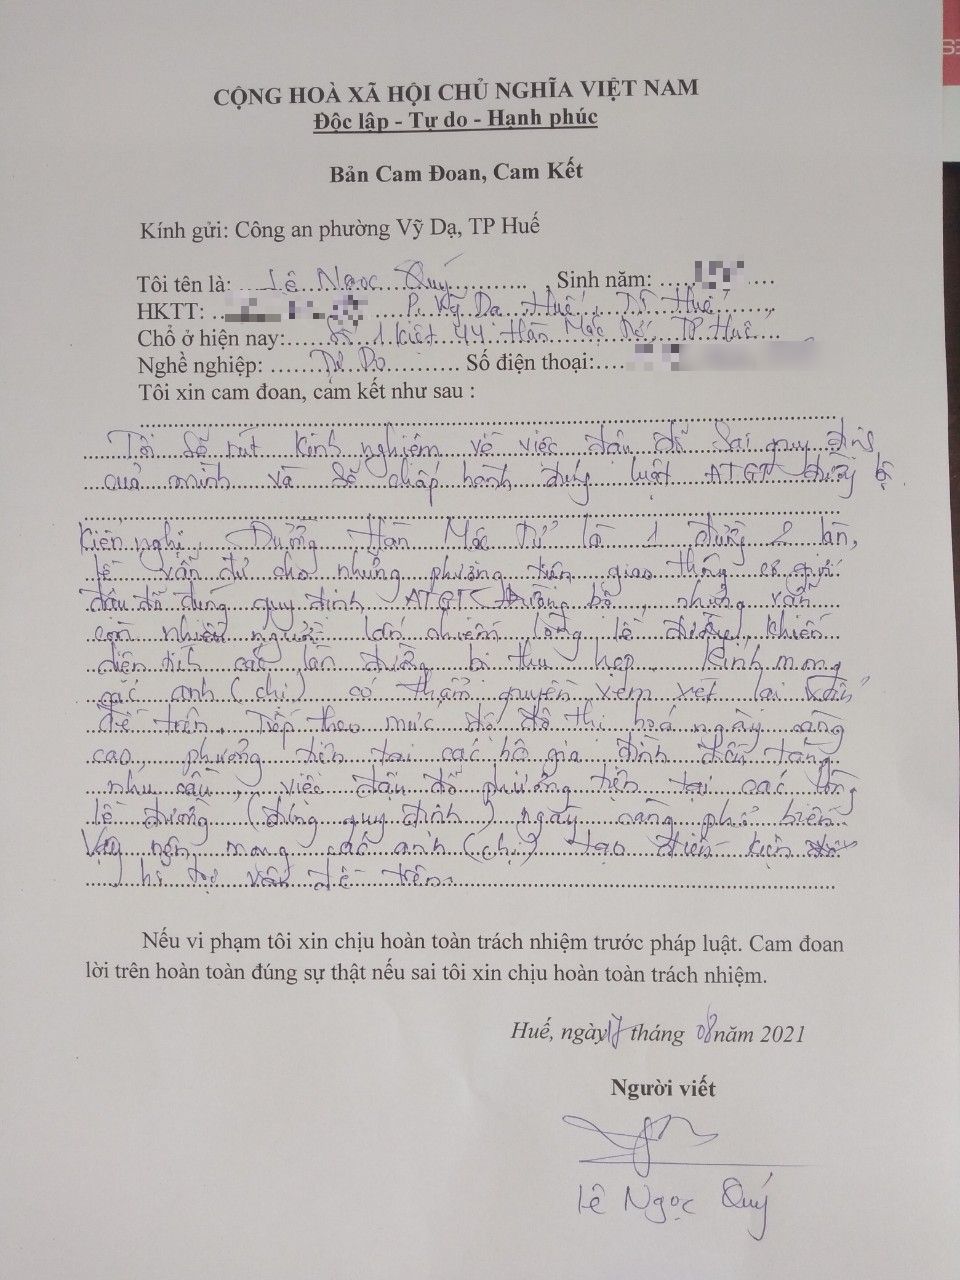 CỘNG HOÀ XÃ HỘI CHỦ NGHĨA VIỆT NAM
Độc lập - Tự do - Hạnh phúc
Bản Cam Đoan, Cam Kết
Kính gửi: Công an phường Vỹ Dạ, TP Huế
Tôi tên là: Lê Ngọc Quý Sinh năm:
HKTT: P. Vỹ Dạ, Huế, TT Huế
Chổ ở hiện nay: Số 1 kiệt 44 Hàn Mặc Tử, TP Huế
Nghề nghiệp: Tự Do Số điện thoại:
Tôi xin cam đoan, cam kết như sau :
Tôi sẽ rút kinh nghiệm về việc đậu đỗ sai quy định
của mình và sẽ chấp hành đúng luật ATGT đường bộ
Kiến nghị, Đường Hàn Mặc Tử là 1 đường 2 làn,
lề vẫn đủ cho những phương tiện giao thông
đậu đỗ đúng quy định ATGT đường bộ, nhưng vẫn
còn nhiều người lấn chiếm lòng lề đường, khiến
diện tích các làn đường bị thu hẹp. Kính mong
các anh (chị) có thẩm quyền xem xét lại vấn
đề trên. Tiếp theo mức độ đô thị hoá ngày càng
cao, phương tiện tại các hộ gia đình đều tăng
nhu cầu, việc đậu đỗ phương tiện tại các lòng
lề đường (đúng quy định) ngày càng phổ biến
Vậy nên mong các anh (chị) tạo điều kiện
vấn đề trên.
Nếu vi phạm tôi xin chịu hoàn toàn trách nhiệm trước pháp luật. Cam đoan
lời trên hoàn toàn đúng sự thật nếu sai tôi xin chịu hoàn toàn trách nhiệm.
Huế, ngày 17 tháng 08 năm 2021
Người viết
Lê Ngọc Quý